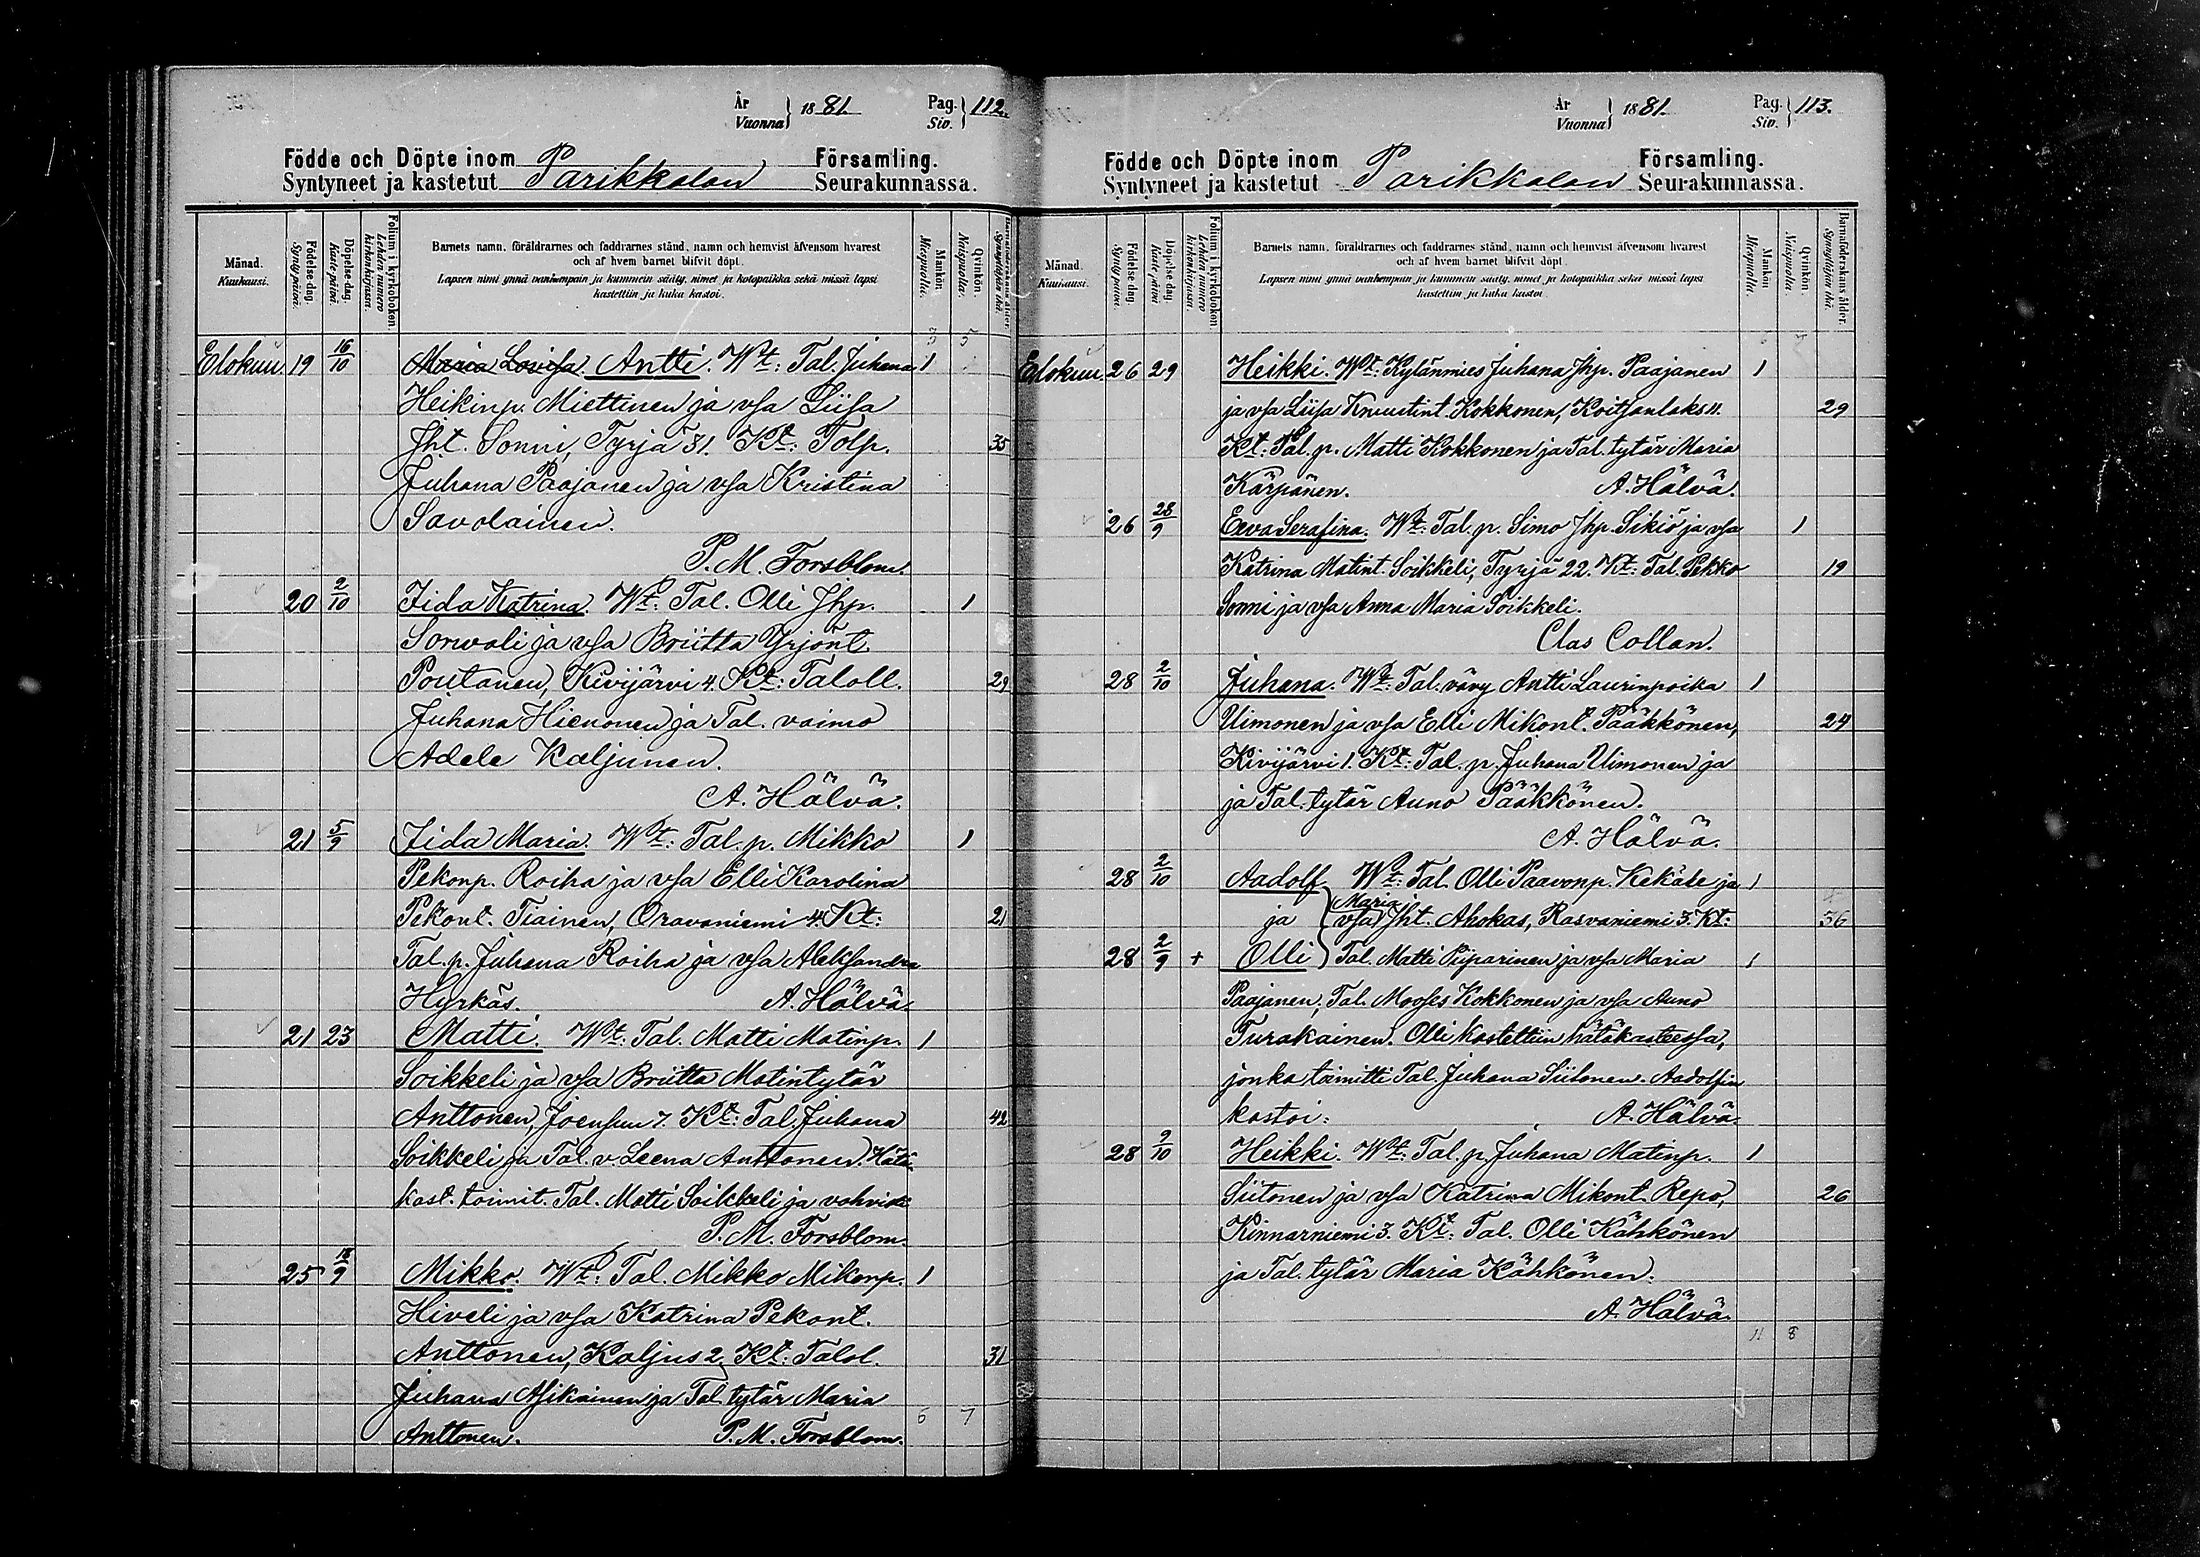 År
Vuonna } 1881.
Pag.
Siv. } 112.
Födde och Döpte inom Parikkalan Församling.
Syntyneet ja kastetut Seurakunnassa.
Månad.
Kuukausi.
Födelse-dag.
Synty-päivä.
Döpelse-dag.
Kaste-päivä.
Folium i kyrkobokon
Lehden numero kirkonkirjassa.
Barnets namn, föräldrarnes och faddrarnes stånd, namn och hemvist äfvensom hvarest
och af hvem barnet blifvit döpt.
Lapsen nimi ynnä vanhempain ja kummein sääty, nimet ja kotopaikka sekä missä lapsi
kastettiin ja kuka kastoi.
Mankön.
Miespuolia.
Qvinkön.
Naispuolia.
Elokuu 19 16/10 Maria Lovisa Antti. Wt: Tal. Juhana 1
Heikinp. Miettinen ja vsa Liisa
Jht. Sonni, Tyrjä 31. Kt: Tolp. 35
Juhana Paajanen ja vsa Kristina
Savolainen.
P. M. Forsblom.
20 2/10 Iida Katrina. Wt: Tal. Olli Jhp. 1
Sorvali ja vsa Briitta Yrjönt.
Poutanen, Kivijärvi 4. Kt: Taloll. 29
Juhana Hienonen ja Tal. vaimo
Adele Kaljunen.
A. Hälvä.
21 5/9 Iida Maria. Wt: Tal. p. Mikko 1
Pekonp. Roiha ja vsa Elli Karolina
Pekont. Tiainen, Oravaniemi 4. Kt: 21
Tal. p. Juhana Roiha ja vsa Aleksandra
Hyrkäs. A. Hälvä.
21 23 Matti. Wt: Tal. Matti Matinp. 1
Soikkeli ja vsa Briitta Matintytär
Anttonen, Joensuu 7. Kt: Tal. Juhana 42
Soikkeli ja Tal. v. Leena Anttonen. Hätä-
kast. toimit. Tal. Matti Soikkeli ja vahvisti
P. M. Forsblom.
25 18/9 Mikko. Wt: Tal. Mikko Mikonp. 1
Hiveli ja vsa Katrina Pekont.
Anttonen, Kaljus 2. Kt: Talol. 31
Juhana Asikainen ja Tal. tytär Maria
Anttonen. P. M. Forsblom.
6 7
År
Vuonna } 1881.
Pag.
Siv. } 113.
Födde och Döpte inom Parikkalan Församling.
Syntyneet ja kastetut Seurakunnassa.
Månad.
Kuukausi.
Födelse-dag.
Synty-päivä.
Döpelse-dag.
Kaste-päivä.
Folium i kyrkobokon
Lehden numero kirkonkirjassa.
Barnets namn, föräldrarnes och faddrarnes stånd, namn och hemvist äfvensom hvarest
och af hvem barnet blifvit döpt.
Lapsen nimi ynnä vanhempain ja kummein sääty, nimet ja kotopaikka sekä missä lapsi
kastettiin ja kuka kastoi.
Mankön.
Miespuolia.
Qvinkön.
Naispuolia.
Barnaföderskans ålder.
Synnyttäjän ikä.
Elokuu 26 29 Heikki. Wt: Kylänmies Juhana Jhp. Paajanen 1
ja vsa Liisa Kokkonen, Koitsanlaks 11. 29
Kt: Tal. p. Matti Kokkonen ja Tal. tytär Maria
Kärpänen. A. Hälvä.
26 28/9 Eeva Serafina. Wt: Tal. p. Simo Jhp. Sikiö ja vsa 1
Katrina Matint. Soikkeli, Tyrjä 22. Kt: Tal. Pekko 19
Sonni ja vsa Anna Maria Soikkeli.
Clas Collan.
28 2/10 Juhana. Wt: Tal. vävy Antti Laurinpoika 1
Uimonen ja vsa Elli Mikont. Pääkkönen, 24
Kivijärvi 1. Kt: Tal. p. Juhana Uimonen ja
ja Tal. tytär Auno Pääkkönen.
A. Hälvä.
28 2/10 Aadolf Wt: Tal. Olli Paavonp. Kekäle ja 1
ja vsa Maria Jht. Ahokas, Rasvaniemi 3. Kt: 36
28 2/9 + Olli Tal. Matti Piiparinen ja vsa Maria 1
Paajanen, Tal. Mooses Kokkonen ja vsa Auno
Turakainen. Olli kastettiin hätäkasteessa,
jonka toimitti Tal. Juhana Siitonen. Aadolfin
kastoi: A. Hälvä.
28 9/10 Heikki. Wt: Tal. p. Juhana Matinp. 1
Siitonen ja vsa Katrina Mikont. Repo, 26
Kinnarniemi 3. Kt: Tal. Olli Kähkönen
ja Tal. tytär Maria Kähkönen.
A. Hälvä.
11 8